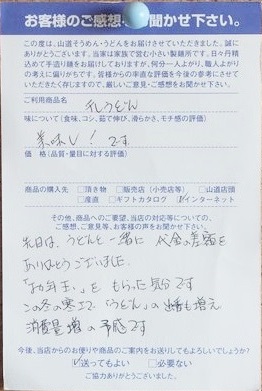 お客様のご感想、お聞かせ下さい。
この度は、山道そうめん・うどんをお届けさせていただきました。誠に
ありがとうございます。当家は家族で営む小さい製麺所です。日々丹精
込めて手造り麺をお届けしておりますが、何分一人よがり、職人よがり
の考えに偏りがちです。皆様からの率直な評価を今後の参考にさせて
いただきたく存じますので、厳しいご意見・ご感想をお聞かせ下さい。
ご利用商品名
うどん
味について(食味、コシ、茹で伸び、滑らかさ、モチ感の評価)
美味し!です
価 格(品質・量目に対する評価)
商品の購入先 □頂き物 □販売店(小売店等) □山道店頭
□産直 □ギフトカタログ インターネット
その他、商品へのご要望、当店の対応等についての、
ご感想、ご意見等、お客様の声をお聞かせ下さい。
先日は、うどんと一緒に 代金の差額を
ありがとうございました。
「お年玉」を もらった気分です
この冬の寒さで「うどん」の 出番も増え
消費量増の予感です
今後、当店からのお便りや商品のご案内をお送りしてもよろしいでしょうか?
送ってもよい □必要ない
ご協力ありがとうございました。